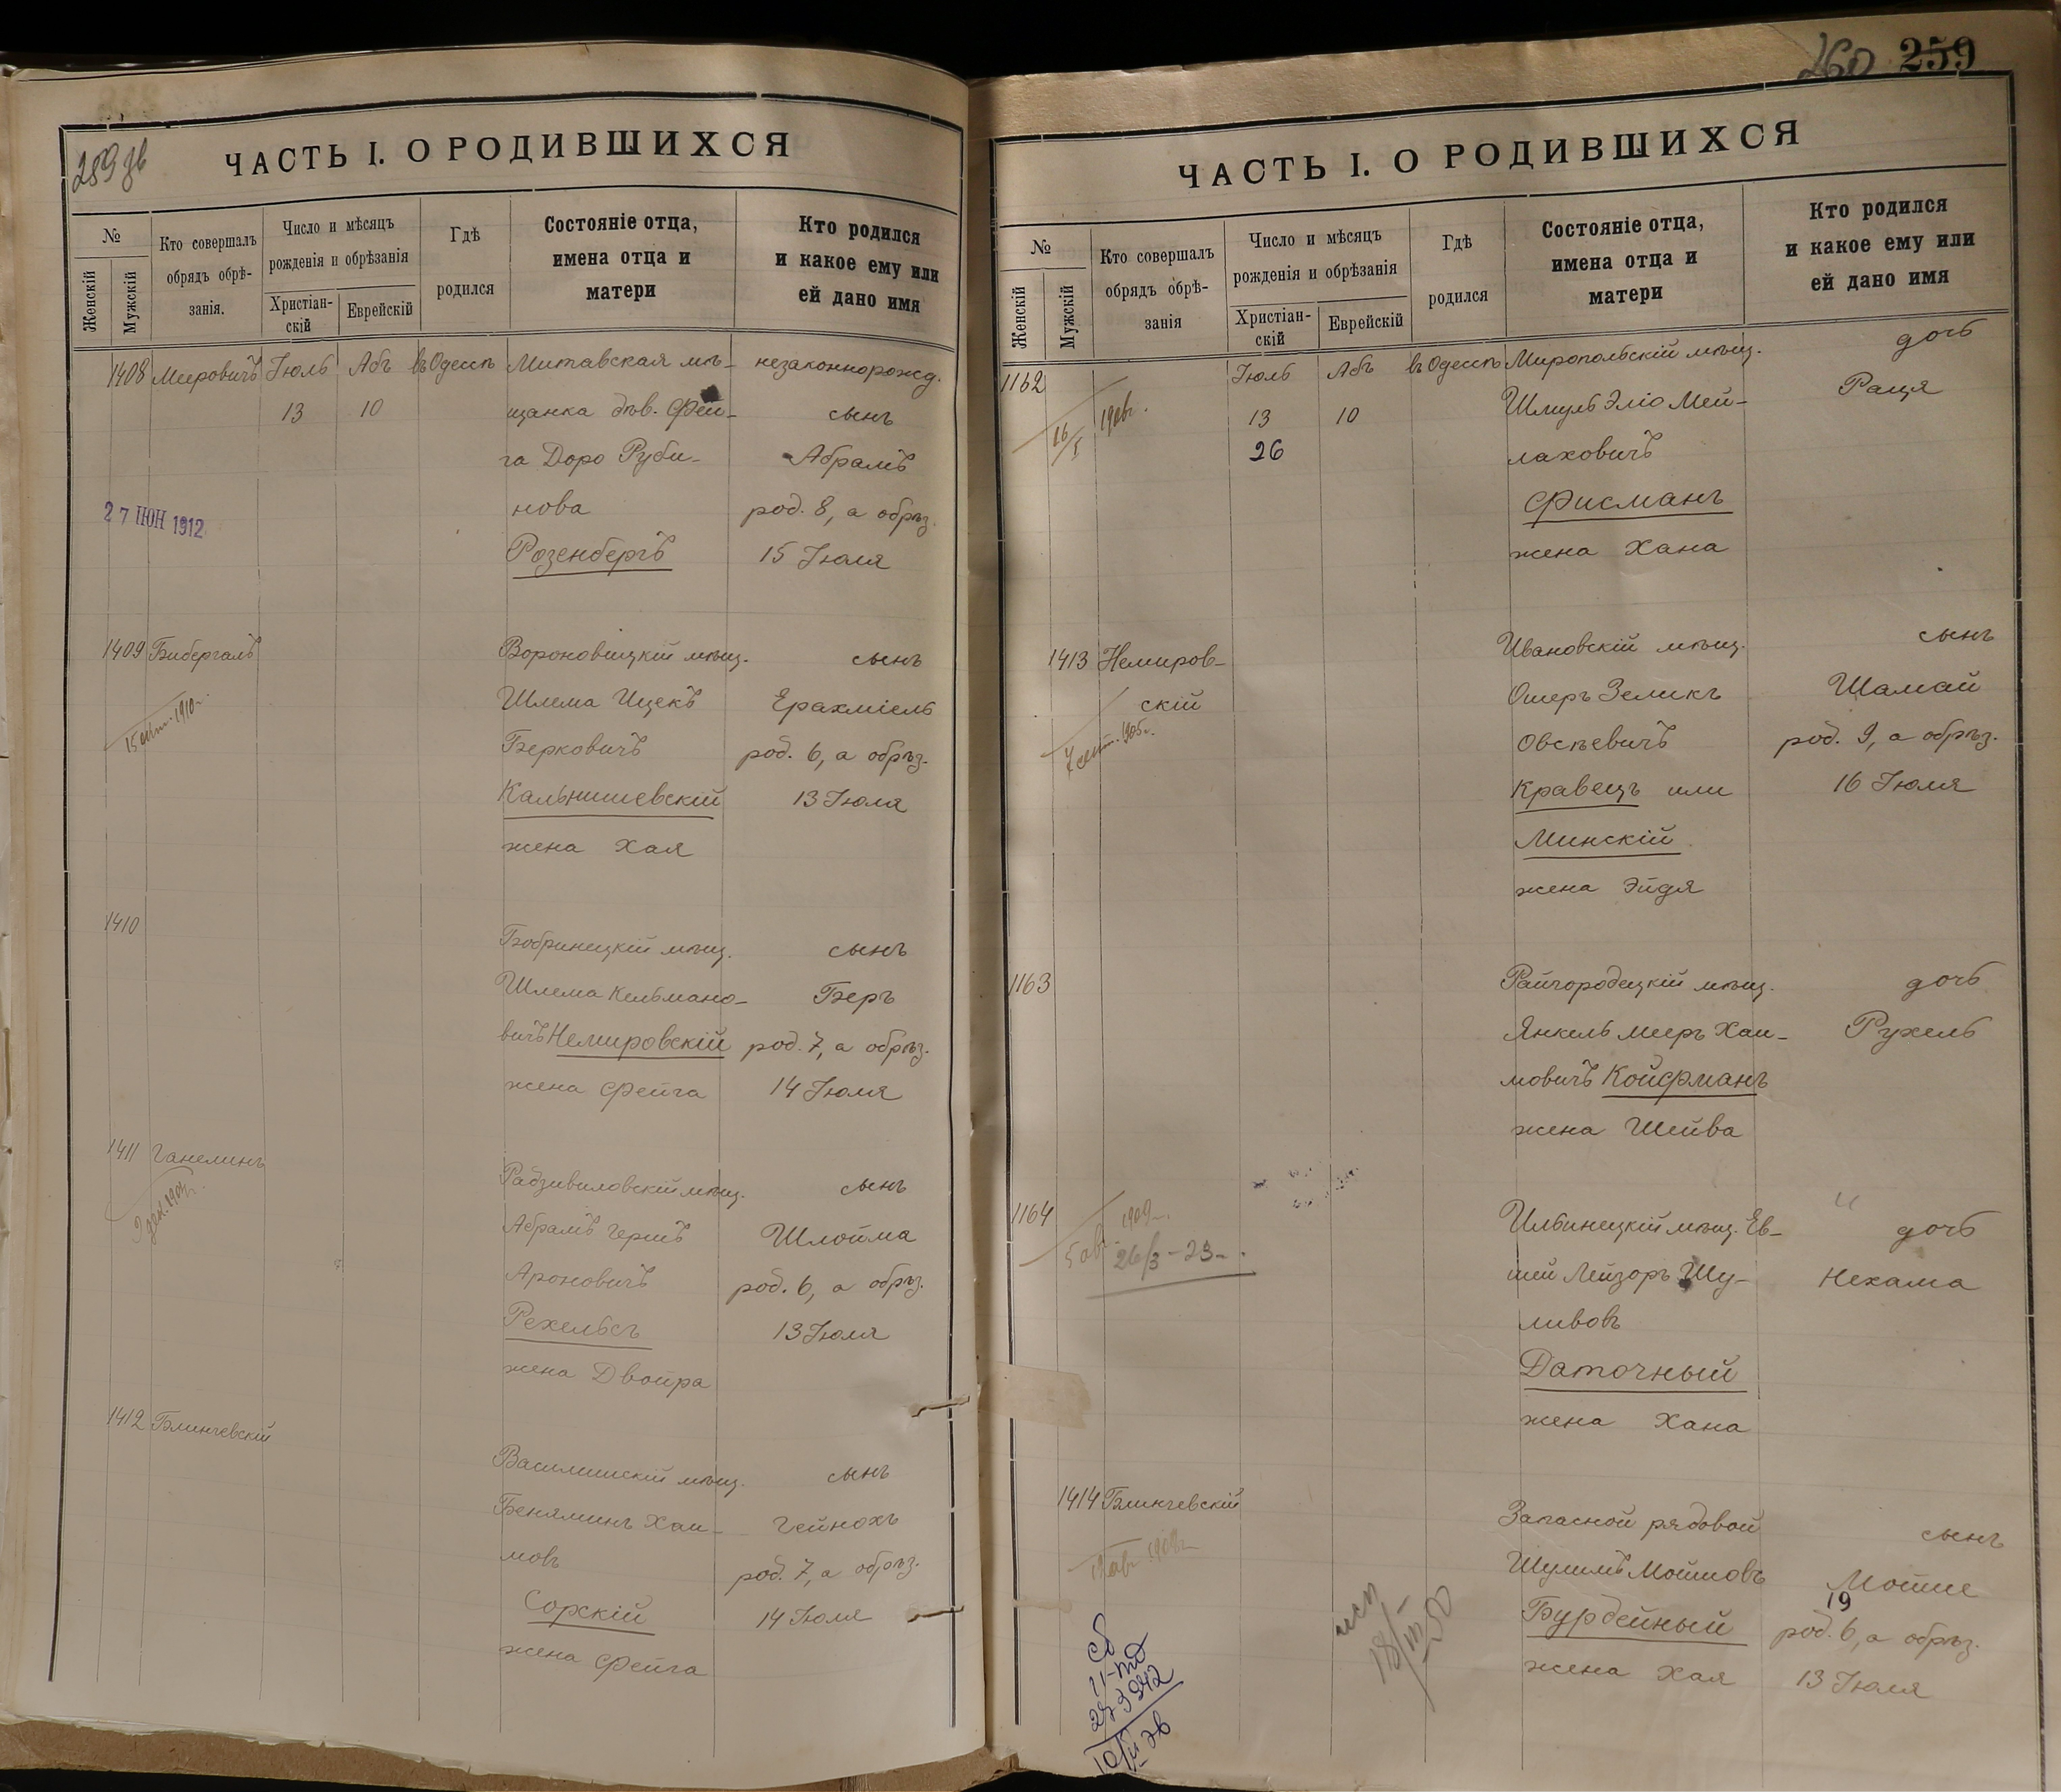 259 зв
ЧАСТЬ I. О РОДИВШИХСЯ
№
Женскій
Мужскій
Кто совершалъ
обрядъ обрѣ-
занія.
Число и мѣсяцъ
рожденія и обрѣзанія
Христіан-
скій
Еврейскій
Гдѣ
родился
Состояніе отца,
имена отца и
матери
Кто родился
и какое ему или
ей дано имя
1408 Мееровичъ Іюль Абъ въ Одессѣ Митавская мѣ- незаконнорожд.
13 10 щанка дѣв. Фей- сынъ
га Доро Руби- Абрамъ
27 ІЮН 1912 нова род. 8, а обрѣз.
Розенбергъ 15 Іюля
1409 Бибергалъ Вороновицкій мѣщ. сынъ
15 1910 г. Шлема Ицекъ Ерахміель
Берковичъ род. 6, а обрѣз.
Кальнишевскій 13 Іюля
жена Хая
1410 Бобринецкій мѣщ. сынъ
Шлема Кельмано- Беръ
вичъ Немировскій род. 7, а обрѣз.
жена Фейга 14 Іюля
1411 Ганелинъ Радзивиловскій мѣщ. сынъ
9 дек. 1904 г. Абрамъ Гершъ Шлойма
Ароновичъ род. 6, а обрѣз.
Рехельсъ 13 Іюля
жена Двойра
1412 Блинчевскій Василишскій мѣщ. сынъ
Беняминъ Хаи- Гейнохъ
мовъ род. 7, а обрѣз.
Сорскій 14 Іюля
жена Фейга
260 259
ЧАСТЬ I. О РОДИВШИХСЯ
№
Женскій
Мужскій
Кто совершалъ
обрядъ обрѣ-
занія
Число и мѣсяцъ
рожденія и обрѣзанія
Христіан-
скій
Еврейскій
Гдѣ
родился
Состояніе отца,
имена отца и
матери
Кто родился
и какое ему или
ей дано имя
1162 Іюль Абъ въ Одессѣ Миропольскій мѣщ. дочь
16/I 1906 г. 13 10 Шмуль Эліо Мей- Рація
26 лаховичъ
Фисманъ
жена Хана
1413 Немиров- Ивановскій мѣщ. сынъ
скій Ошеръ Зеликъ Шамай
7 сент. 1905 г. Овсѣевичъ род. 9, а обрѣз.
Кравецъ или 16 Іюля
Минскій
жена Эйдя
1163 Райгородецкій мѣщ. дочь
Янкель Мееръ Хаи- Рухель
мовичъ Койфманъ
жена Шейва
1164 Ильинецкій мѣщ. Ев- дочь
5 авг. 1909 г. 26/3-23 шей Лейзоръ Шу- Нехама
ливовъ
Даточный
жена Хана
1414 Блинчевскій Запасной рядовой сынъ
Шулимъ Мойшовъ Мойше
19
Бурдейный род. 6, а обрѣз.
жена Хая 13 Іюля
18/III-50